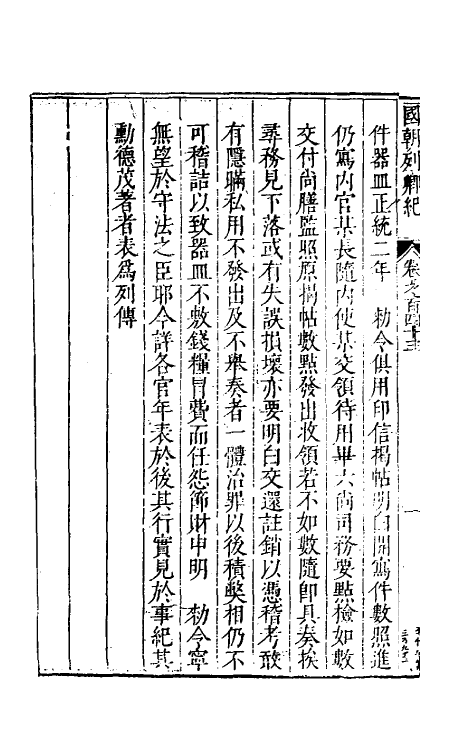 國朝列卿紀
卷之一百四十三
件器皿正統二年 勅令俱用印信揭帖明白開寫件數照進
仍寫內官某長隨內使某交領待用畢六尚司務要點檢如數
交付尚膳監照原揭帖數點發出收領若不如數隨卽具奏挨
尋務見下落或有失誤損壞亦要明白交還註銷以憑稽考敢
有隱瞞私用不發出及不舉奏者一體治罪以後積獘相仍不
可稽詰以致器皿不敷錢糧冒費而任怨節財申明 勅令寧
無望於守法之臣耶今詳各官年表於後其行實見於事紀其
勳德茂著者表爲列傳